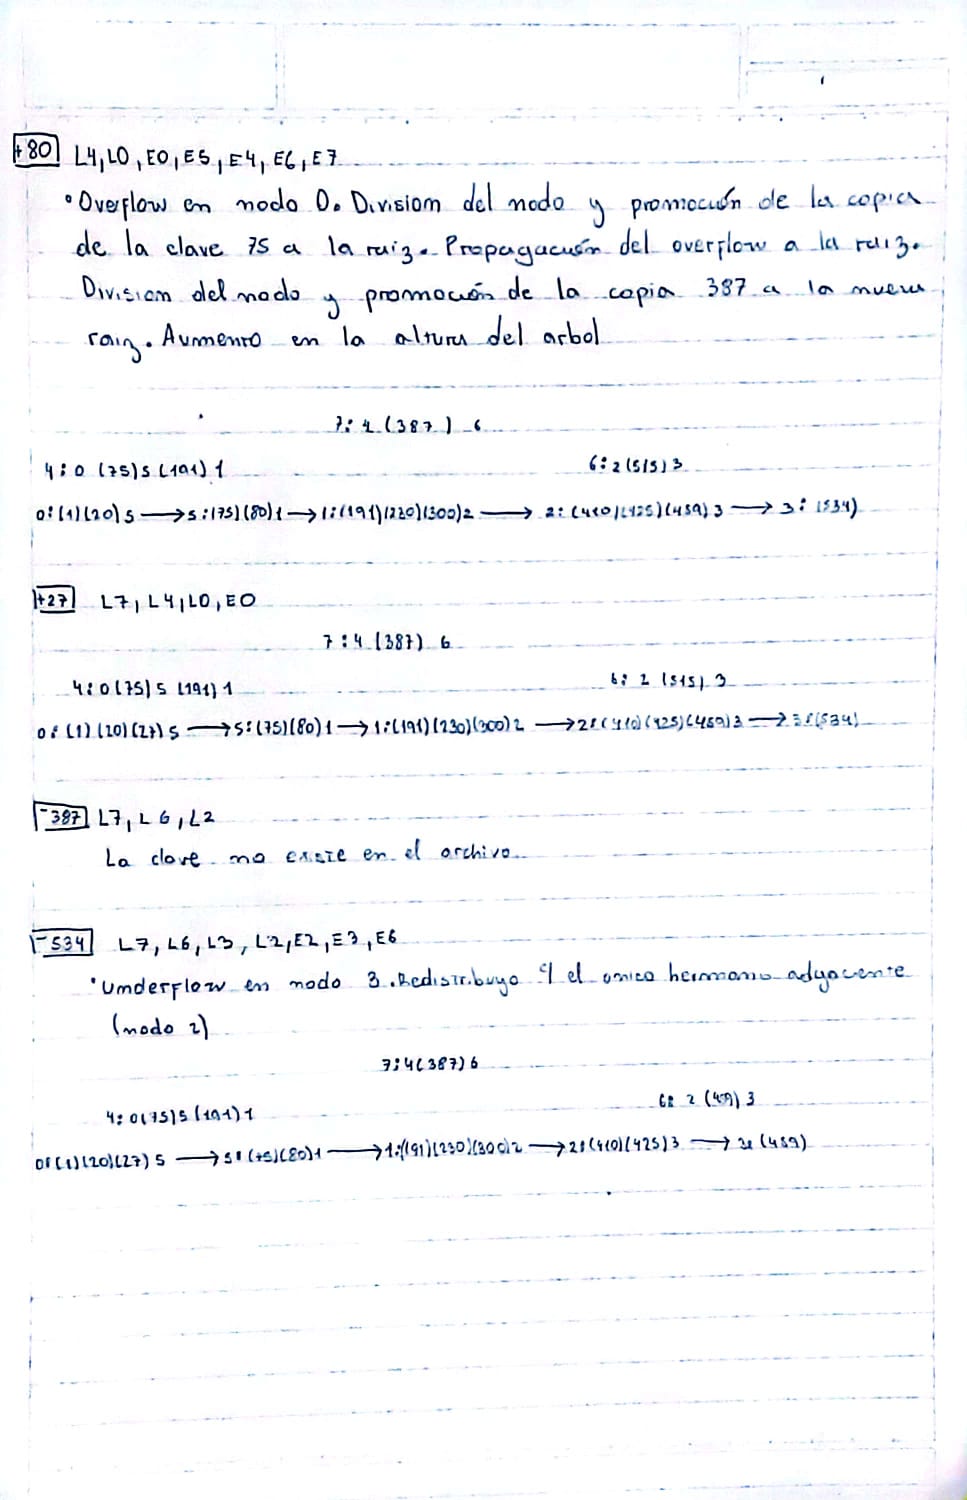 +80 L4, L0, E0, E5, E4, E6, E7
• Overflow en nodo 0. Division del nodo y promoción de la copia
de la clave 75 a la raiz. Propagación del overflow a la raiz.
Division del nodo y promoción de la copia 387 a la nueva
raiz. Aumento en la altura del arbol
7: 4 (387) 6
4: 0 (75) 5 (191) 1 6: 2 (515) 3
0: (1)(20) 5 → 5: (75)(80) 1 → 1: (191)(230)(300) 2 → 2: (410)(425)(459) 3 → 3: (534)
+27 L7, L4, L0, E0
7: 4 (387) 6
4: 0 (75) 5 (191) 1 6: 2 (515) 3
0: (1)(20)(27) 5 → 5: (75)(80) 1 → 1: (191)(230)(300) 2 → 2: (410)(425)(459) 3 → 3: (534)
-387 L7, L6, L2
La clave no existe en el archivo.
-534 L7, L6, L3, L2, E2, E3, E6
• Underflow en nodo 3. Redistribuyo c/ el unico hermano adyacente
(nodo 2)
7: 4 (387) 6
4: 0 (75) 5 (191) 1 6: 2 (459) 3
0: (1)(20)(27) 5 → 5: (75)(80) 1 → 1: (191)(230)(300) 2 → 2: (410)(425) 3 → 3: (459)